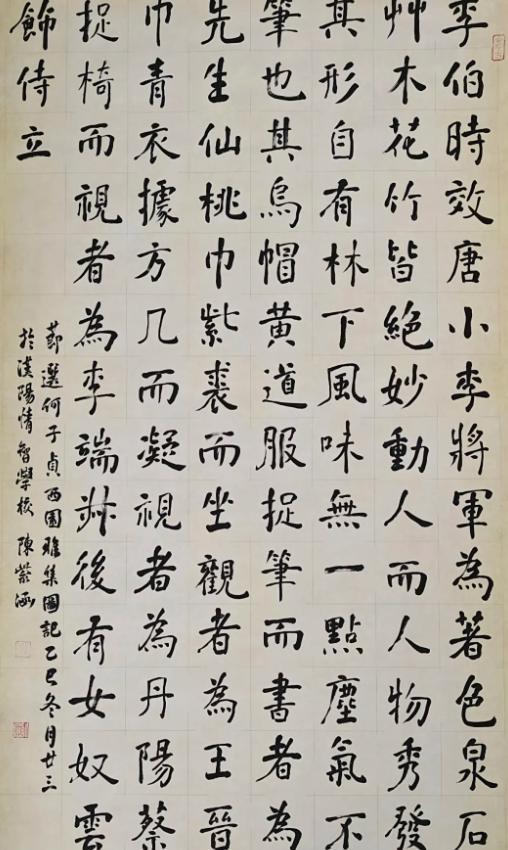 李伯時效唐小李將軍為著色泉石
艸木花竹皆絕妙動人而人物秀發
其形自有林下風味無一點塵氣不
筆也其烏帽黃道服捉筆而書者為
先生仙桃巾紫裘而坐觀者為王晉
巾青衣據方几而凝視者為丹陽蔡
捉椅而視者為李端叔後有女奴雲
飾侍立
節選何子貞西園雅集圖記乙巳冬月廿三
於漢陽情智學校 陳紫涵